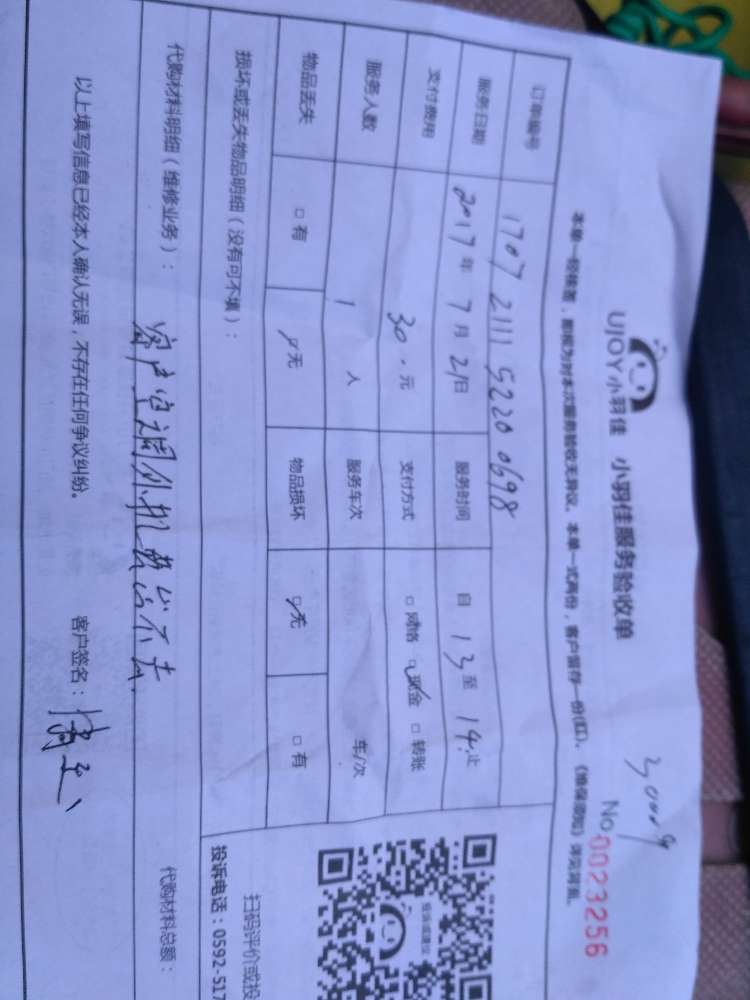 UJOY小羽佳 小羽佳服务验收单
30009
No 0023256
本单一经核签，即视为对本次服务验收无异议。本单一式两份，客户留存一份(红)。《维保须知》详见背面。
订单编号 1707 2111 5220 0698
服务日期 2017年 7月 21日 服务时间 自 13 至 14 止
支付费用 30.元 支付方式 □网络 □现金 □转账
服务人数 1 人 服务车次 车/次
物品丢失 □有 □无 物品损坏 □无 □有
损坏或丢失物品明细（没有可不填）：
投诉或建议
扫码评价或投
投诉电话：0592-517
代购材料明细（维修业务）： 客户空调外机 出不去. 代购材料总额：
以上填写信息已经本人确认无误，不存在任何争议纠纷。 客户签名：